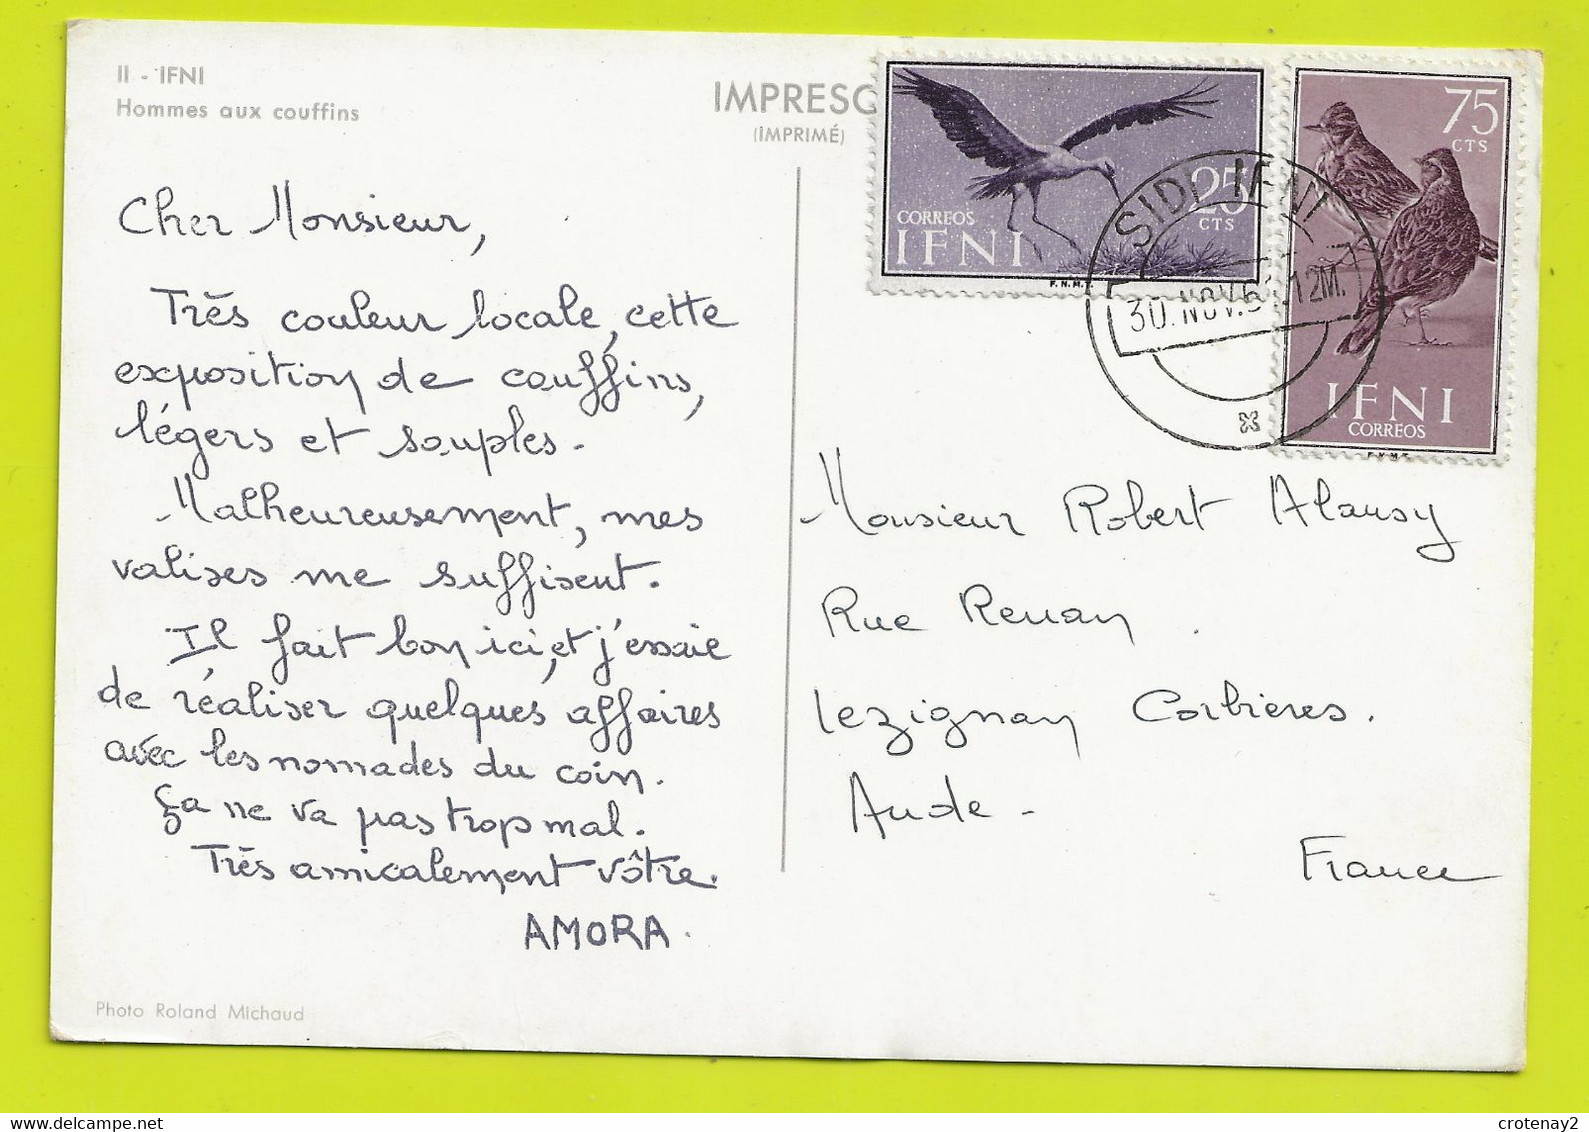 II - IFNI
Hommes aux couffins
IMPRESO
(IMPRIMÉ)
CORREOS
IFNI
25
CTS
F.N.M.T.
75
CTS
IFNI
CORREOS
SIDI IFNI
30. NOV. 6 12M.
Cher Monsieur,
Très couleur locale, cette
exposition de couffins,
légers et souples.
Malheureusement, mes
valises me suffisent.
Il fait bon ici, et j'essaie
de réaliser quelques affaires
avec les nomades du coin.
Ça ne va pas trop mal.
Très amicalement vôtre.
AMORA.
Monsieur Robert Alausy
Rue Renan.
Lezignan Corbières.
Aude -
France
Photo Roland Michaud
crotenay2